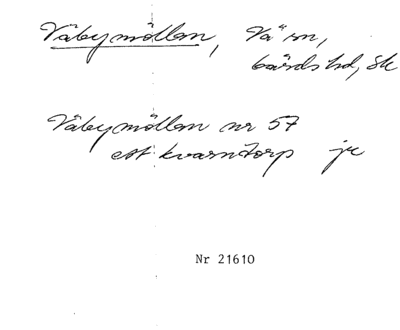 Väbymöllan, Vä sn,
Gärds hd, Sk
Väbymöllan nr 57
ett kvarntorp jr
Nr 21610